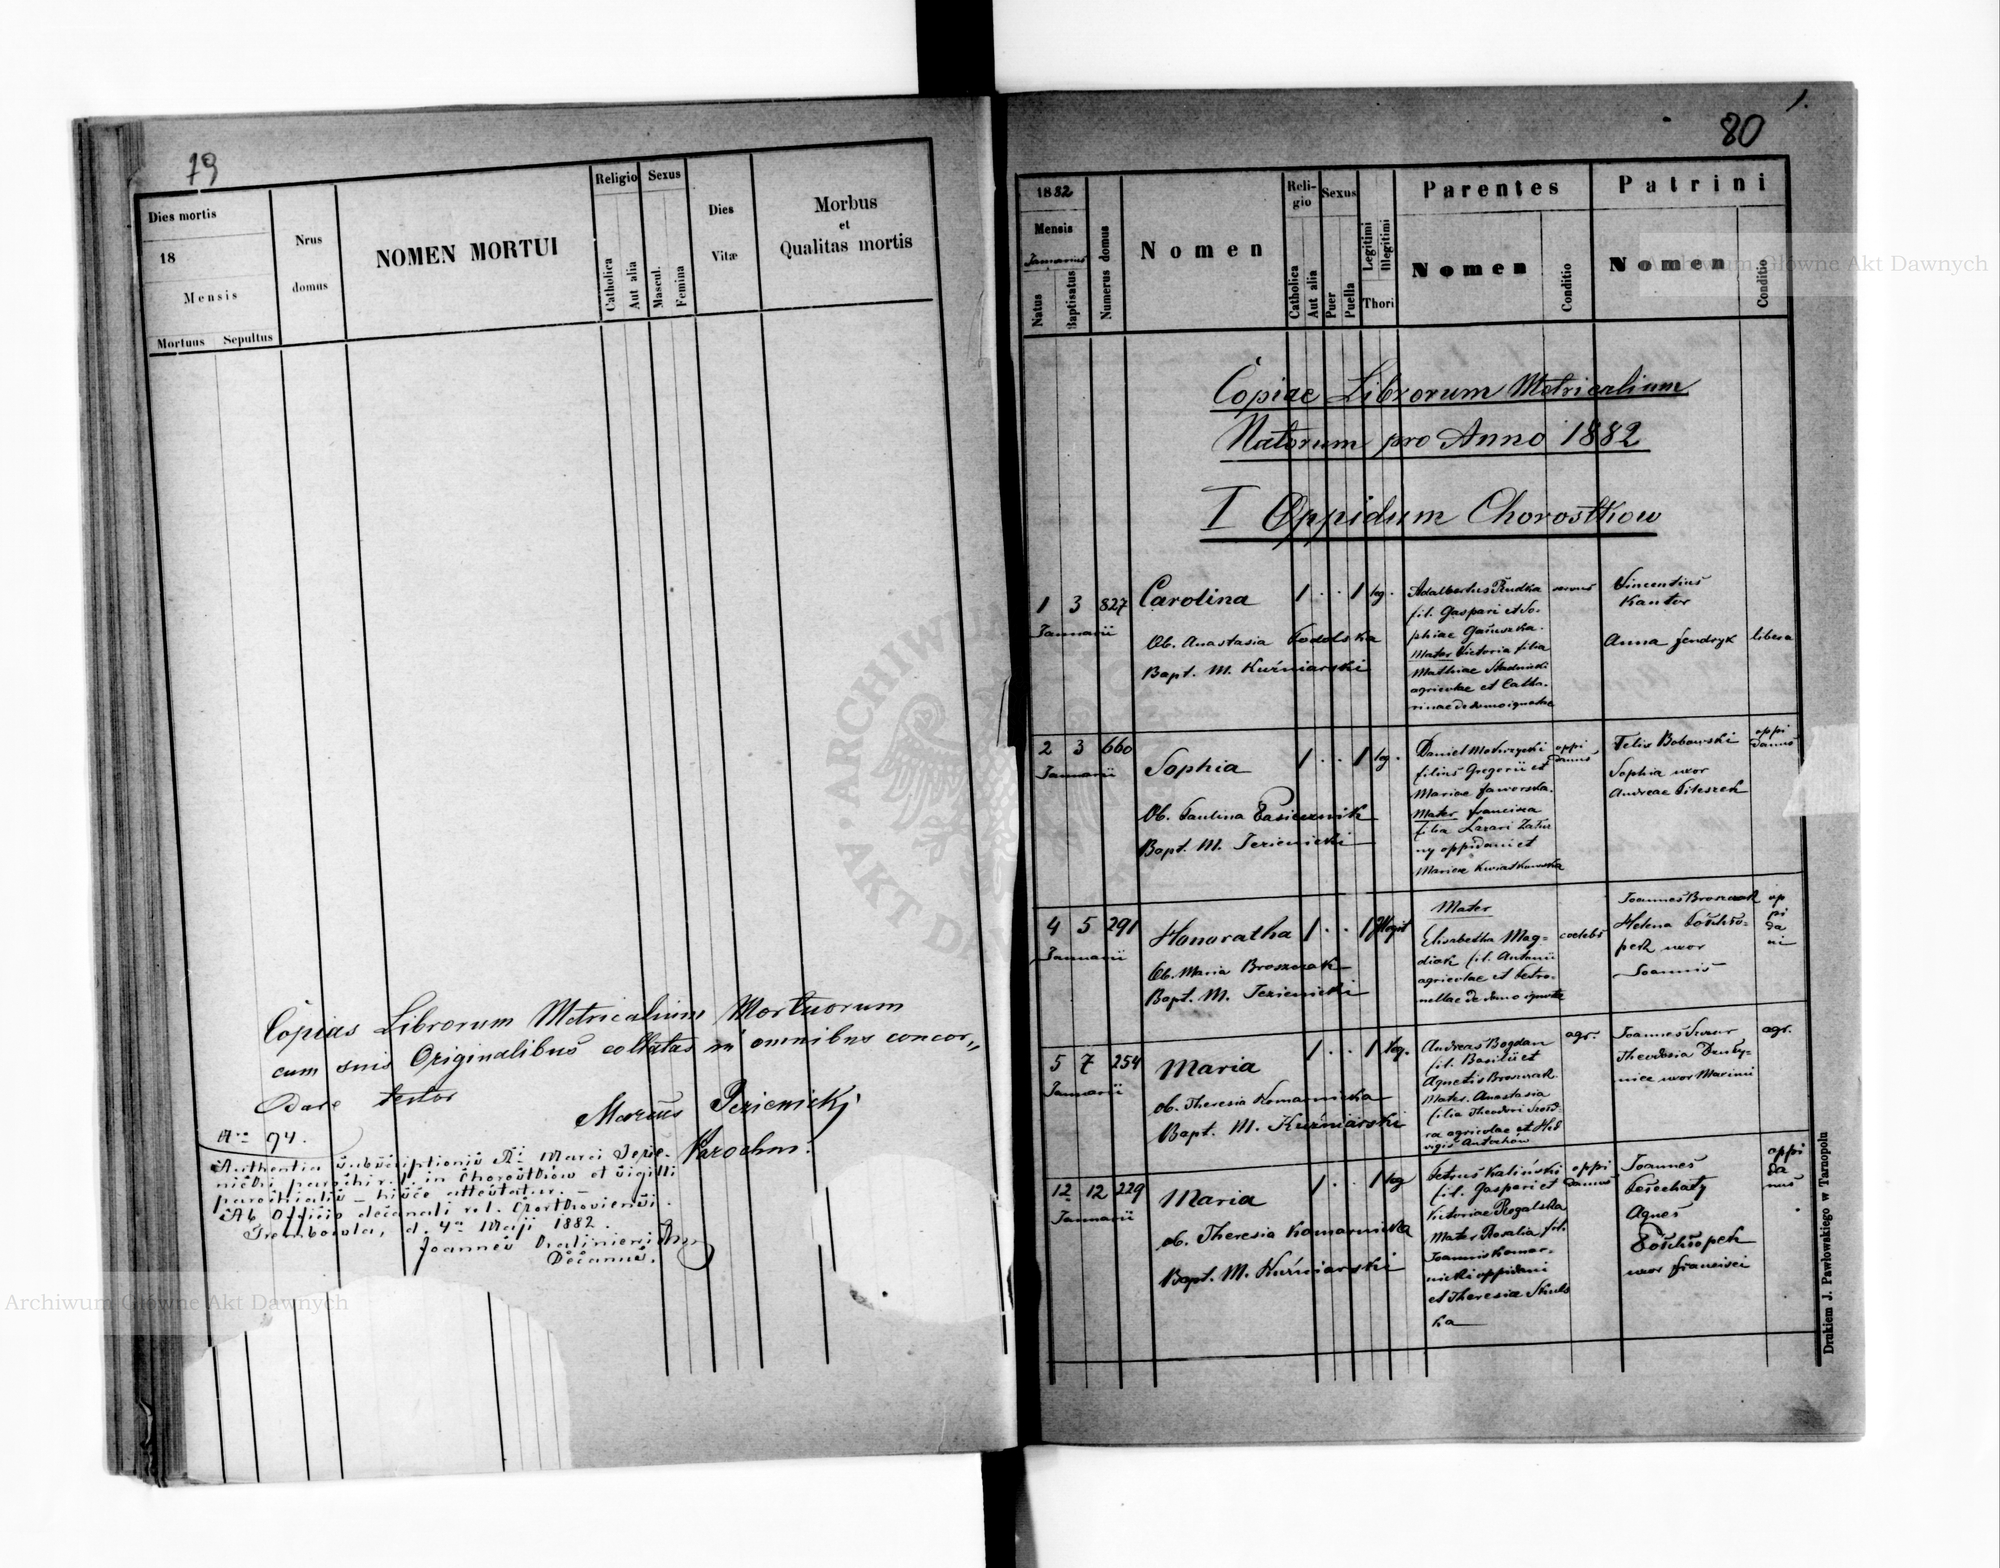 79
Dies mortis
18
Mensis
Mortuus Sepultus
Nrus
domus
NOMEN MORTUI
Religio
Catholica
Aut alia
Sexus
Mascul.
Femina
Dies
Vitæ
Morbus
et
Qualitas mortis
Copias Librorum Metricalium Mortuorum
cum suis Originalibus collatas in omnibus concor„
dare testor
Marcus
Parochus.
Nro 94.
Authentia subscriptionis Rdi Marci
parochi r. l. in Chorostków et sigilli
parochialis – hisce attestatur. –
Ab Officio decanali r. l. Czortkoviensi.
Trembowla, d. 4a Maji 1882.
Joannes
Decanus.
1.
80
1882
Mensis
Januarius
Natus
Baptisatus
Numerus domus
Nomen
Religio
Catholica
Aut alia
Sexus
Puer
Puella
Legitimi
Illegitimi
Thori
Parentes
Nomen
Conditio
Patrini
Nomen
Conditio
Copiae Librorum Metricalium
Natorum pro Anno 1882
I Oppidum Chorostkow
1 3 827
Januarii
Carolina
1 . . 1 leg.
Ob. Anastasia Podolska
Bapt. M. Kuźniarski
Adalbertus Rudka
fil. Gaspari et So-
phiae
Mater Victoria filia
Mathiae
agricolae et Catha-
rinae de domo ignotae
servus
Vincentius
Kantor
Anna Jendryk
libera
2 3 660
Januarii
Sophia
1 . . 1 leg.
Ob. Paulina Pasiecznik
Bapt. M.
Daniel
filius Gregorii et
Mariae Jaworska.
Mater Francisca
filia Lazari Zatur
ny oppidani et
Mariae Kwiatkowska
oppi
danus
Felix Bobowski
Sophia uxor
Andreae Piteszek
oppi
danus
4 5 291
Januarii
Honoratha
1 . . 1 Illegit
Ob. Maria Broszczak
Bapt. M.
Mater
Elisabetha Mag-
diak fil. Antonii
agricolae et Petro-
nellae de domo ignotae
coelebs
Joannes Broszczak
Helena
uxor
Joannis
op
pi
da
ni
5 7 254
Januarii
Maria
1 . . 1 leg.
ob. Theresia Komarnicka
Bapt. M. Kuźniarski
Andreas Bogdan
fil. Basilii et
Agnetis Broszczak
Mater Anastasia
filia Theodori
agricolae et Hed
vigis
agr.
Joannes
Theodosia
uxor Maximi
agr.
12 12 229
Januarii
Maria
1 . . 1 leg
ob. Theresia Komarnicka
Bapt. M. Kuźniarski
Petrus Kaliński
fil. Gaspari et
Victoriae Rogalska
Mater Rosalia fil.
Joannis Komar-
nicki oppidani
et Theresiae Skuls
ka
oppi
danus
Joannes
Agnes
uxor Francisci
oppi
da
nus
Drukiem J. Pawłowskiego w Tarnopolu
Archiwum Główne Akt Dawnych
Archiwum Główne Akt Dawnych